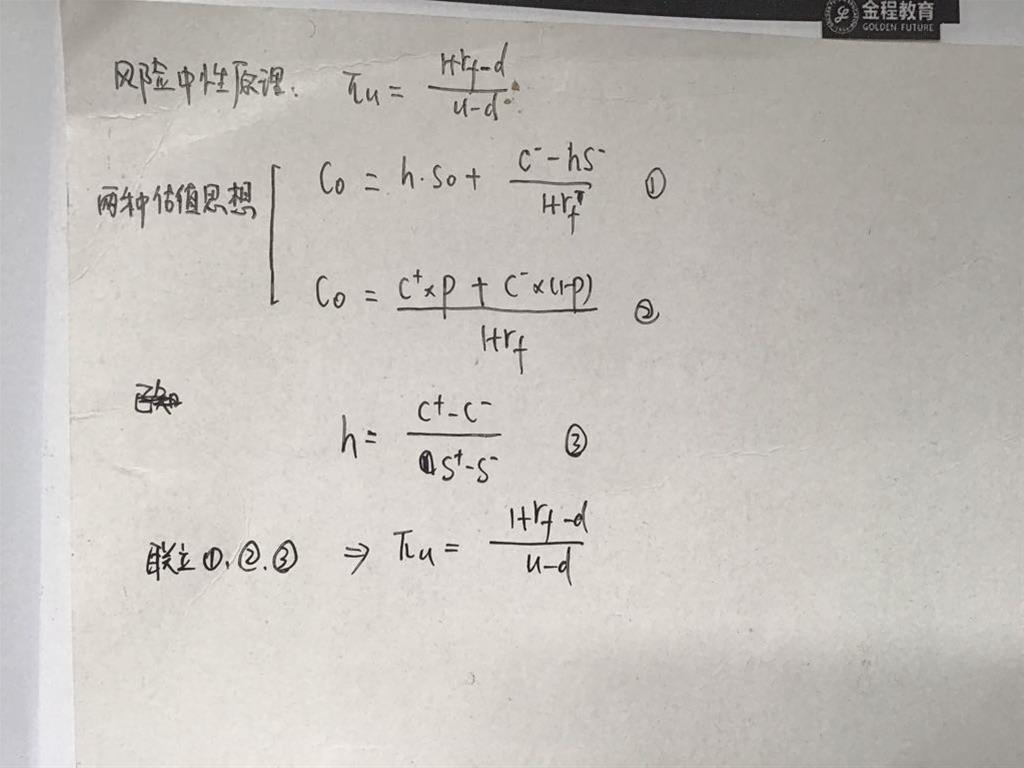 金程教育
GOLDEN FUTURE
风险中性原理: πu = (1+rf-d)/(u-d)
两种估值思想
C0 = h·S0 + (C⁻-hS⁻)/(1+rf) ①
C0 = (C⁺×P + C⁻×(1-P))/(1+rf) ②
h = (C⁺-C⁻)/(S⁺-S⁻) ③
联立①、②、③ ⇒ πu = (1+rf-d)/(u-d)